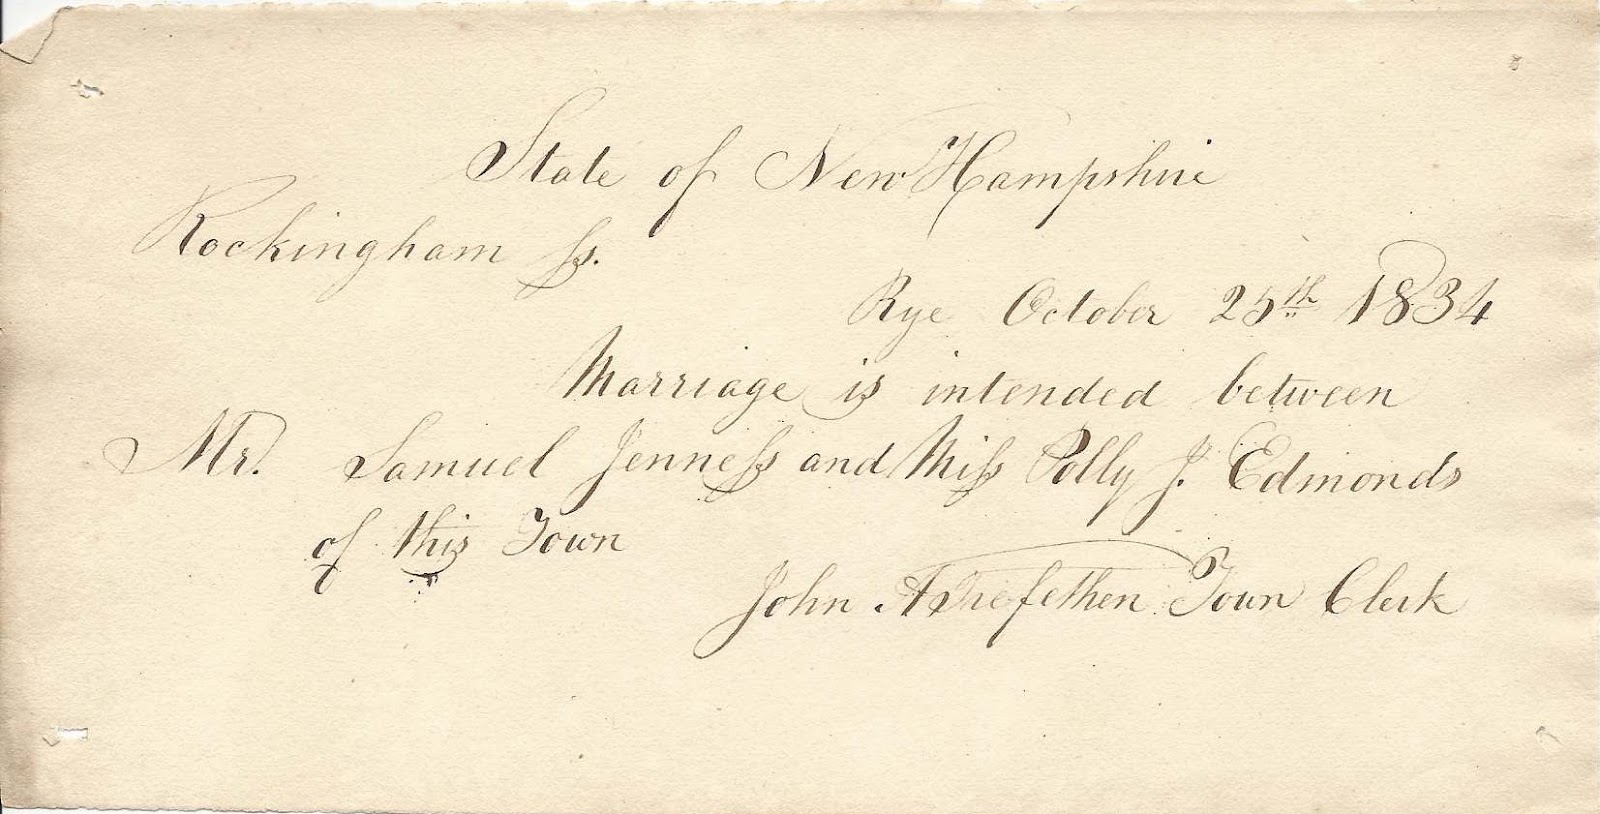 State of New Hampshire
Rockingham ſs.
Rye October 25th 1834
Marriage is intended between
Mr. Samuel Jenneſs and Miſs Polly J. Edmonds
of this Town
John A Trefethen Town Clerk